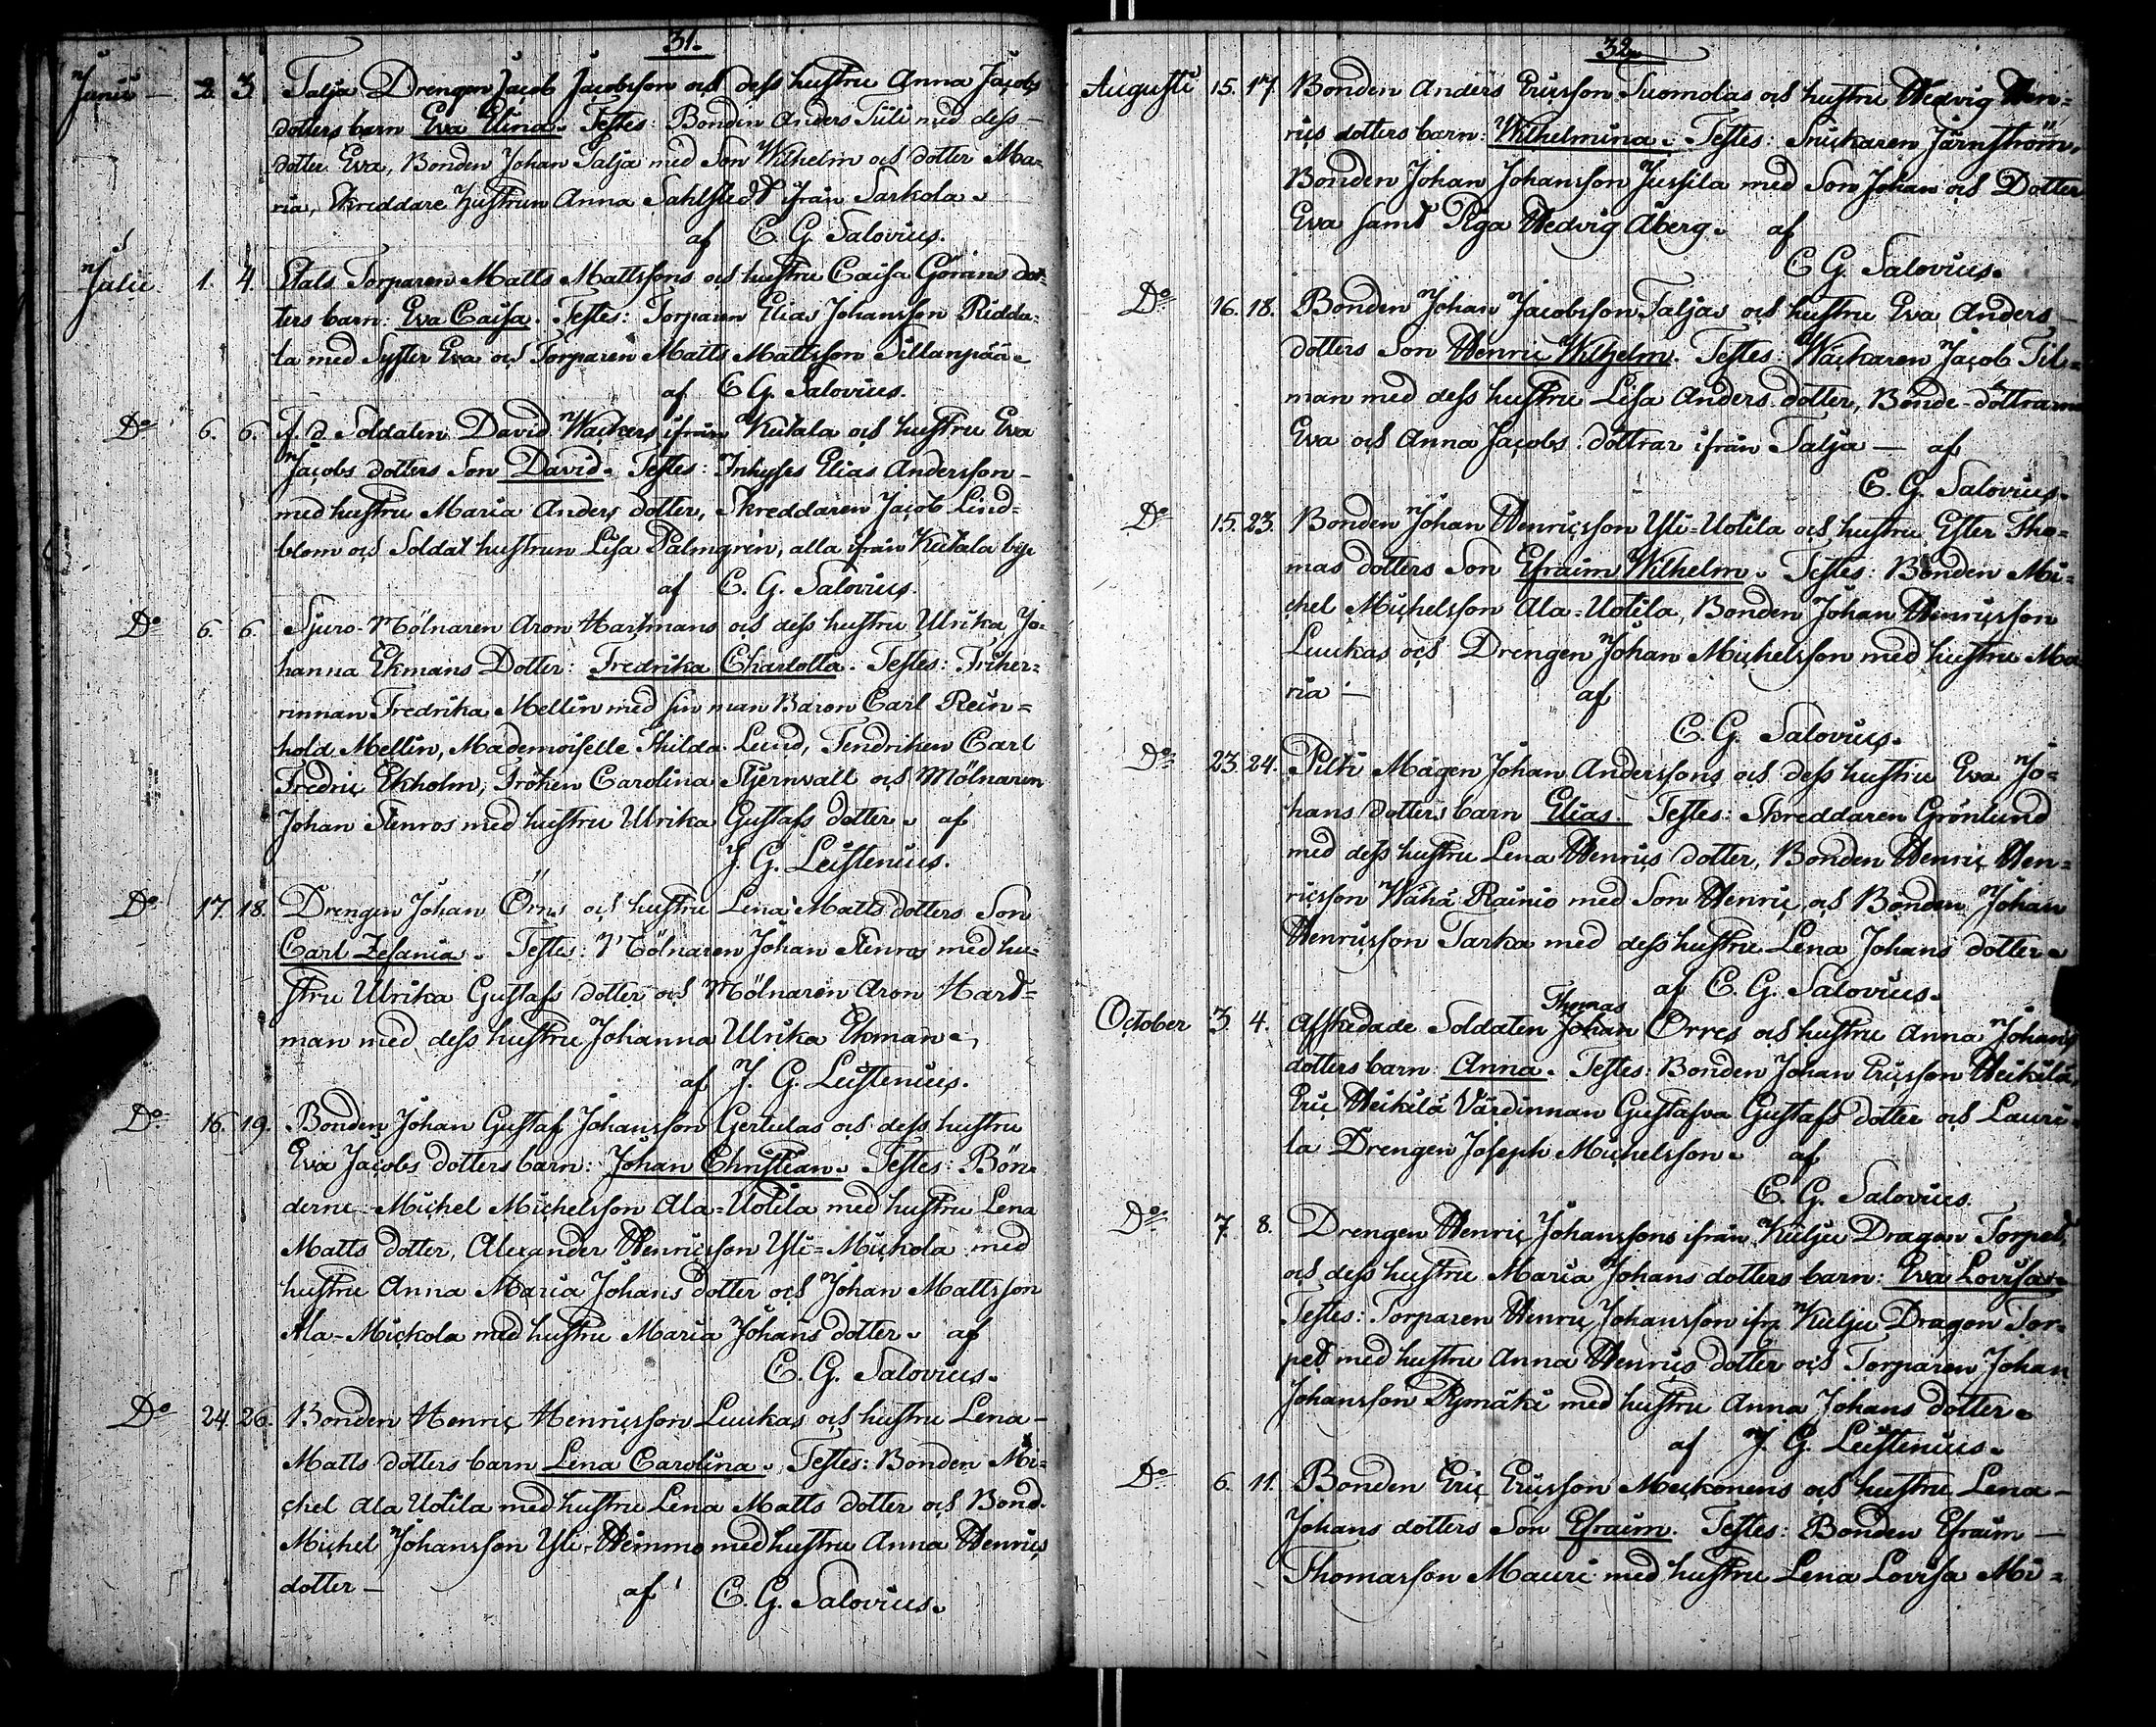 31.
Junii — 2. 3. Talja Drengen Jacob Jacobsson och dess hustru Anna Jacobs
dotters barn Eva Elina. Testes: Bonden Anders Tiili med dess —
dotter Eva, Bonden Johan Talja med Son Wilhelm och dotter Ma=
ria, Skreddare hustrun Anna Sahlstedt ifrån Sarkola.
af C. G. Salovius.
Julii 1. 4. Torparen Matts Mattssons och hustru Caisa Görans dot=
ters barn: Eva Caisa. Testes: Torparen Elias Johansson Ridda=
la med Syster Eva och Torparen Matts Mattsson Sillanpää.
af C G. Salovius.
Do 6. 6. A. d Soldaten David Wackers ifrån Kutala och hustru Eva
Jacobs dotters Son David. Testes: Inhyses Elias Andersson —
med hustru Maria Anders dotter, Skreddaren Jacob Lind=
blom och Soldat hustrun Lisa Palmgrén, alla ifrån Kutala by
af C. G. Salovius.
Do 6. 6. Sjuro-Mölnaren Aron Hartmans och dess hustru Ulrika Jo=
hanna Ekmans Dotter: Fredrika Charlotta. Testes: Friher=
rinnan Fredrika Mellin med sin man Baron Carl Rein=
hold Mellin, Mademoiselle Thilda Lund, Fendriken Carl
Fredric Ekholm, Fröken Carolina Stjernvall och Mölnaren
Johan Stenros med hustru Ulrika Gustafs dotter. af
J. G. Leistenius.
Do 17. 18. Drengen Johan Örns och hustru Lena Matts dotters Son
Carl Zefania. Testes: Mölnaren Johan Stenros med hu=
stru Ulrika Gustafs dotter och Mölnaren Aron Hard=
man med dess hustru Johanna Ulrika Ekman.
af J. G. Leistenius.
Do 16. 19. Bonden Johan Gustaf Johansson Gertulas och dess hustru
Eva Jacobs dotters barn: Johan Christian. Testes: Bön=
derne Michel Michelsson Ala=Uotila med hustru Lena
Matts dotter, Alexander Henricsson Yli=Mickola med
hustru Anna Maria Johans dotter och Johan Mattsson
Ala-Mickola med hustru Maria Johans dotter. af
C. G. Salovius.
Do 24. 26. Bonden Henric Henricsson Luukas och hustru Lena —
Matts dotters barn Lena Carolina. Testes: Bonden Mi=
chel Ala Uotila med hustru Lena Matts dotter och Bond.
Michel Johansson Yli-Heinmo med hustru Anna Henrics
dotter — af C. G. Salovius.
32.
Augusti 15. 17. Bonden Anders Ericsson Tuomolas och hustru Hedvig Hen=
rics dotters barn: Wilhelmina. Testes: Snickaren Järnström,
Bonden Johan Johansson Jussila med Son Johan och Dotter
Eva samt Piga Hedvig Åberg. af
C G. Salovius.
Do 16. 18. Bonden Johan Jacobsson Taljas och hustru Eva Anders —
dotters Son Henric Wilhelm. Testes: Wäckaren Jacob Til=
man med dess hustru Lisa Anders dotter, Bonde-döttrarna
Eva och Anna Jacobs: döttrar ifrån Talja — af
C. G. Salovius.
Do 15. 23. Bonden Johan Henricsson Yli=Uotila och hustru Ester Tho=
mas dotters Son Efraim Wilhelm. Testes: Bonden Mi=
chel Michelsson Ala=Uotila, Bonden Johan Henricsson
Luukas och Drengen Johan Michelsson med hustru Ma
ria — af
C. G. Salovius.
Do 23. 24. Pilti Mågen Johan Anderssons och dess hustru Eva Jo=
hans dotters barn Elias. Testes: Skreddaren Grönlund
med dess hustru Lena Henrics dotter, Bonden Henric Hen=
ricsson Wähä Rainio med Son Henric och Bonden Johan
Henricsson Tarka med dess hustru Lena Johans dotter.
af C. G. Salovius.
October 3 4. Afskedade Soldaten Thomas Johan Orres och hustru Anna Johans
dotters barn: Anna. Testes: Bonden Johan Ericsson Heikilä,
Eric Heikilä Värdinnan Gustafva Gustafs dotter och Lauri=
la Drengen Joseph Michelsson. af
C. G. Salovius.
Do 7. 8. Drengen Henric Johanssons ifrån Kulju Dragon Torpet,
och dess hustru Maria Johans dotters barn: Eva Lovisa.
Testes: Torparen Henric Johansson ifr. Kulju Dragon Tor=
pet med hustru Anna Henrics dotter och Torparen Johan
Johansson Rymäki med hustru Anna Johans dotter.
af J. G. Leistenius.
Do 6. 11. Bonden Eric Ericsson Muckonens och hustru Lena —
Johans dotters Son Efraim. Testes: Bonden Efraim —
Thomasson Mauri med hustru Lena Lovisa Mi=